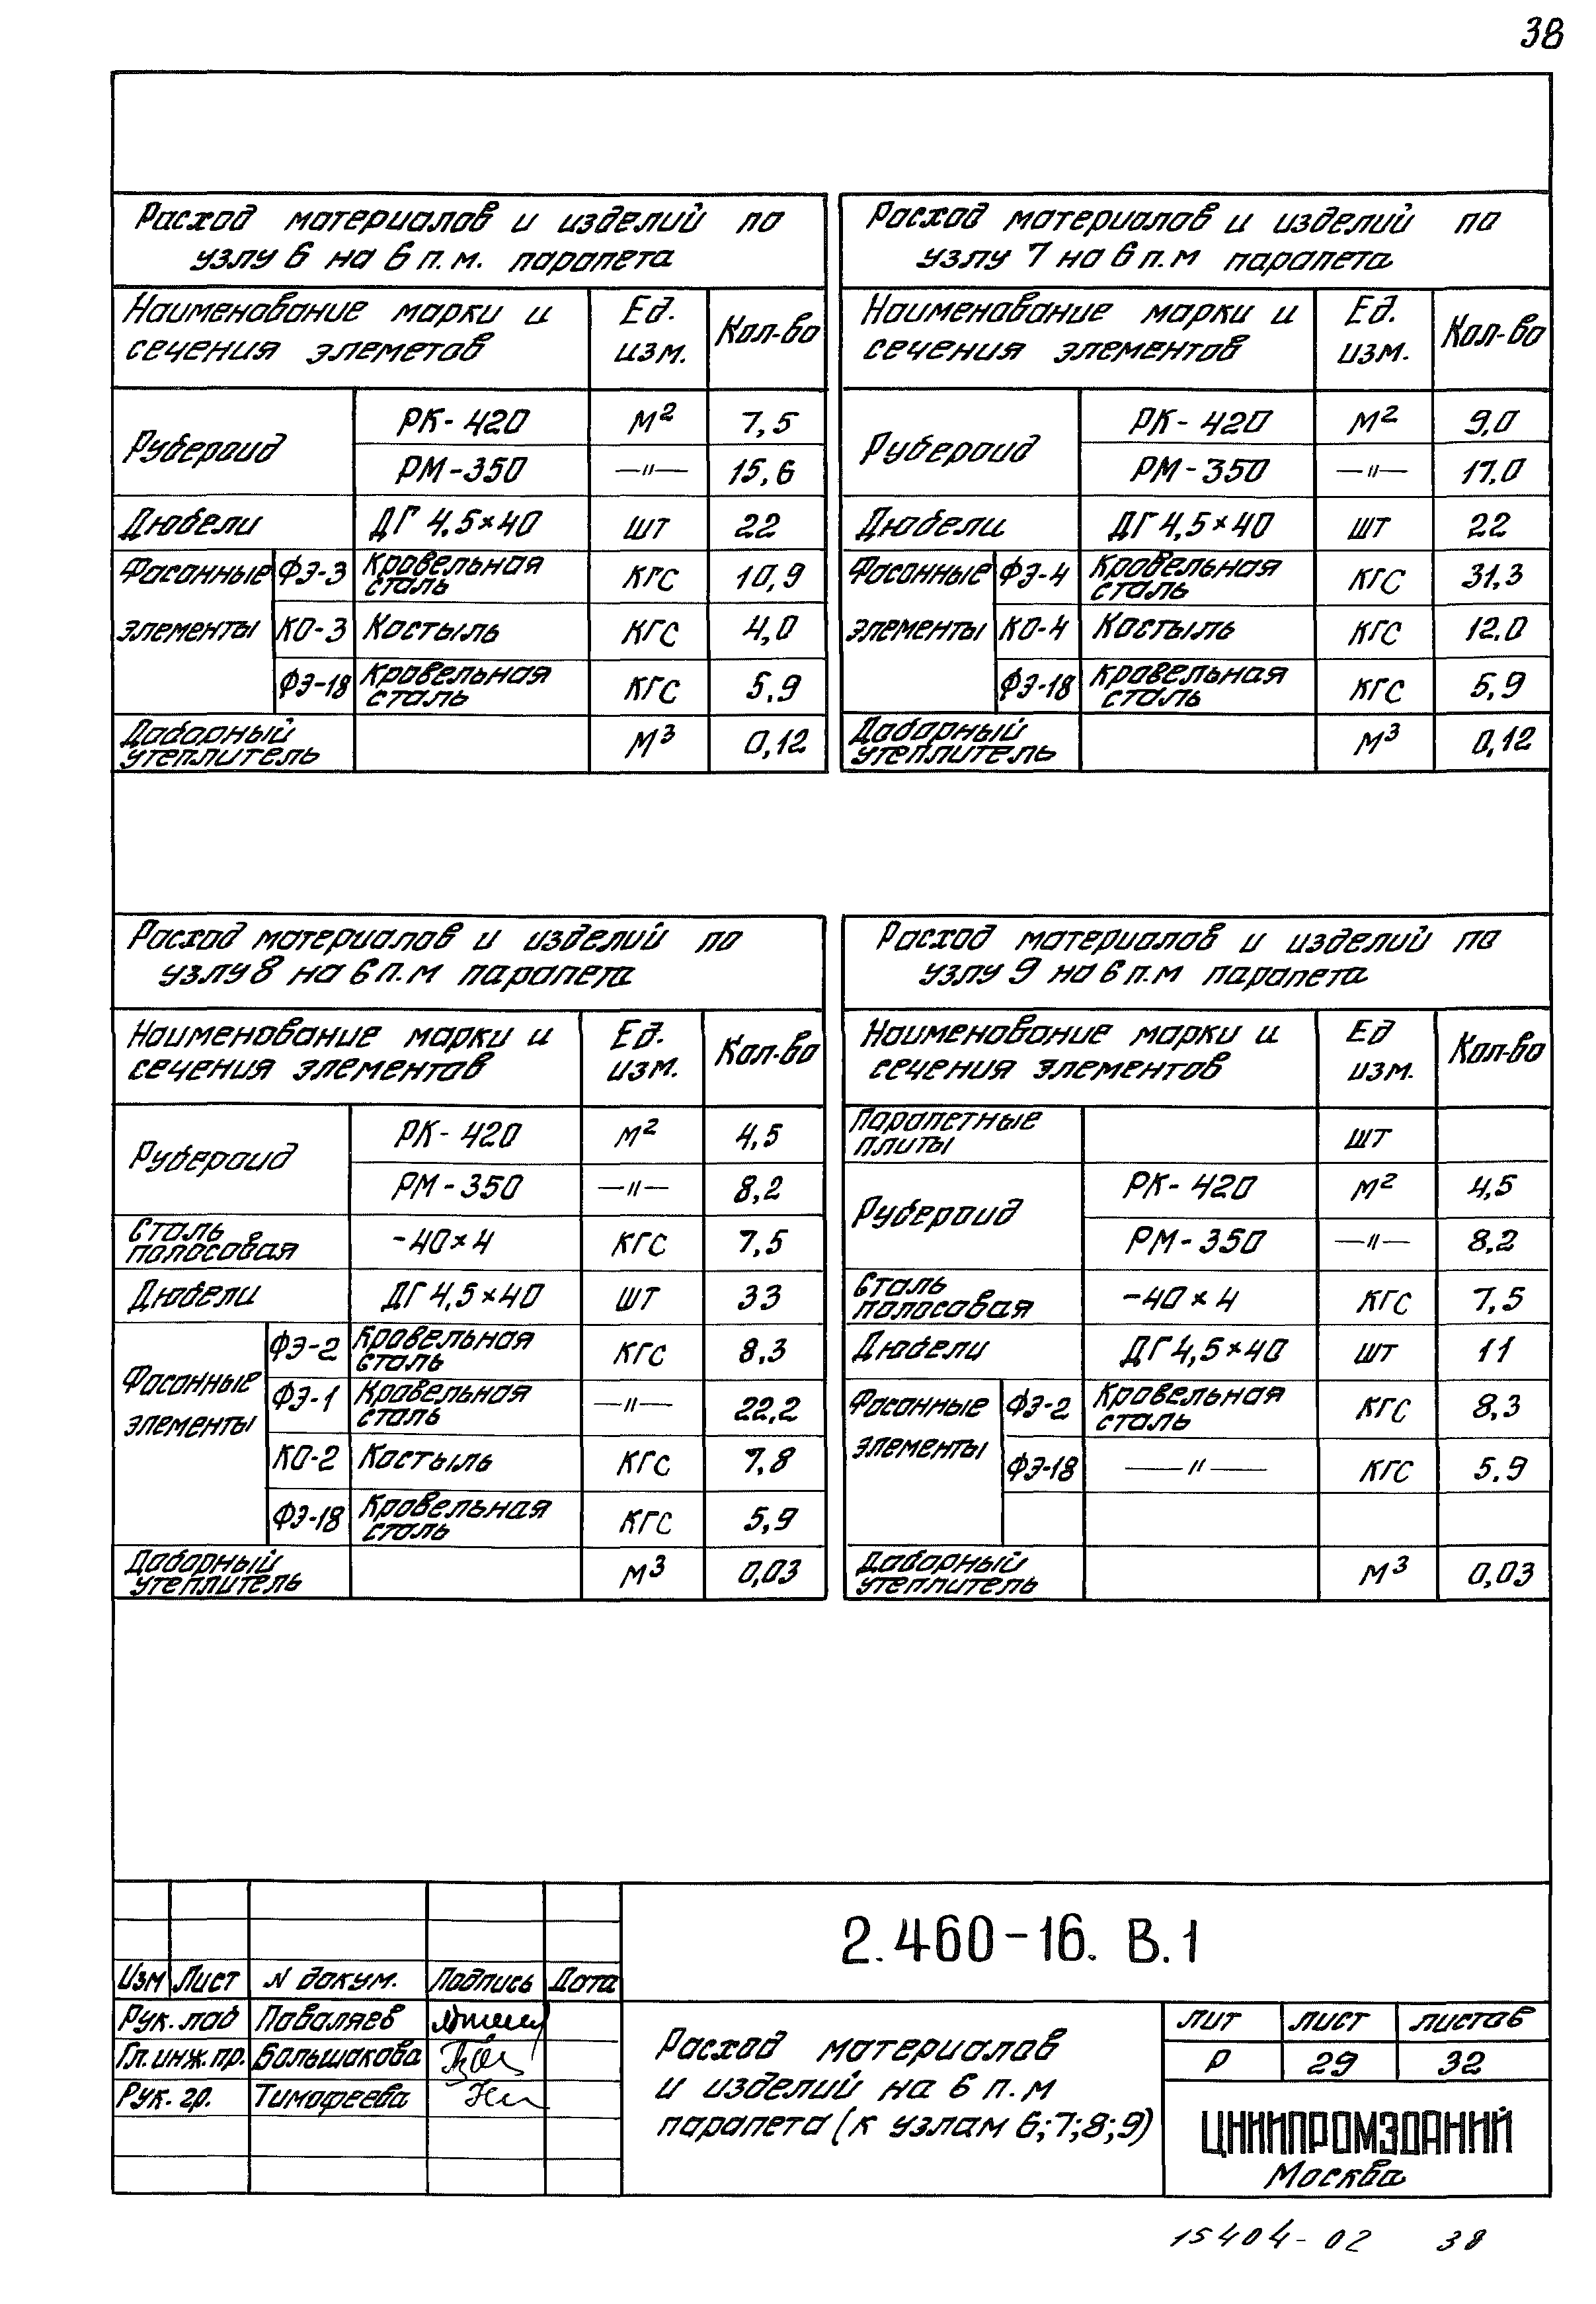 38
Расход материалов и изделий по
узлу 6 на 6 п.м. парапета
Наименование марки и
сечения элеметов
Ед.
изм.
Кол-во
Рубероид
РК-420 м² 7,5
РМ-350 —"— 15,6
Дюбели ДГ 4,5×40 шт 22
Фасонные
элементы
ФЭ-3 Кровельная
сталь
кгс 10,9
КО-3 Костыль кгс 4,0
ФЭ-18 Кровельная
сталь
кгс 5,9
Доборный
утеплитель
м³ 0,12
Расход материалов и изделий по
узлу 7 на 6 п.м парапета
Наименование марки и
сечения элементов
Ед.
изм.
Кол-во
Рубероид
РК-420 м² 9,0
РМ-350 —"— 17,0
Дюбели ДГ 4,5×40 шт 22
Фасонные
элементы
ФЭ-4 Кровельная
сталь
кгс 31,3
КО-4 Костыль кгс 12,0
ФЭ-18 Кровельная
сталь
кгс 5,9
Доборный
утеплитель
м³ 0,12
Расход материалов и изделий по
узлу 8 на 6 п.м парапета
Наименование марки и
сечения элементов
Ед.
изм.
Кол-во
Рубероид
РК-420 м² 4,5
РМ-350 —"— 8,2
Сталь
полосовая
-40×4 кгс 7,5
Дюбели ДГ 4,5×40 шт 33
Фасонные
элементы
ФЭ-2 Кровельная
сталь
кгс 8,3
ФЭ-1 Кровельная
сталь
—"— 22,2
КО-2 Костыль кгс 7,8
ФЭ-18 Кровельная
сталь
кгс 5,9
Доборный
утеплитель
м³ 0,03
Расход материалов и изделий по
узлу 9 на 6 п.м парапета
Наименование марки и
сечения элементов
Ед
изм.
Кол-во
Парапетные
плиты
шт
Рубероид
РК-420 м² 4,5
РМ-350 —"— 8,2
Сталь
полосовая
-40×4 кгс 7,5
Дюбели ДГ 4,5×40 шт 11
Фасонные
элементы
ФЭ-2 Кровельная
сталь
кгс 8,3
ФЭ-18 —"— кгс 5,9
Доборный
утеплитель
м³ 0,03
2.460-16. В.1
Изм Лист N докум. Подпись Дата
Рук. лаб Поваляев
Гл. инж. пр. Большакова
Рук. гр. Тимофеева
Расход материалов
и изделий на 6 п.м
парапета (к узлам 6;7;8;9)
лит лист листов
Р 29 32
ЦНИИПРОМЗДАНИЙ
Москва
15404-02 38